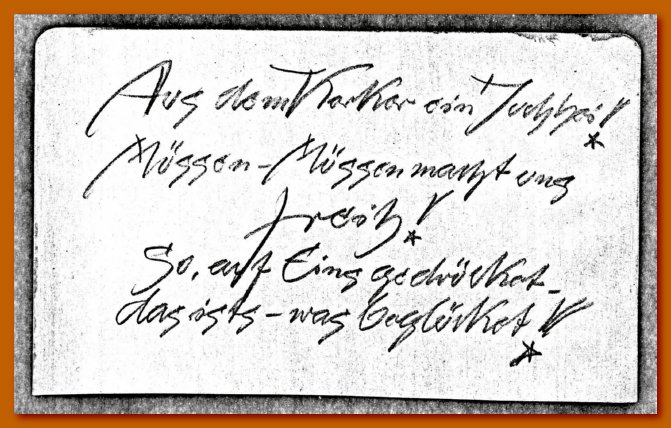 Aus dem Kerker ein Juchhei!
Müssen-Müssen macht uns
freih!
So, auf Eins gedrücket-
das ists-was beglücket!!